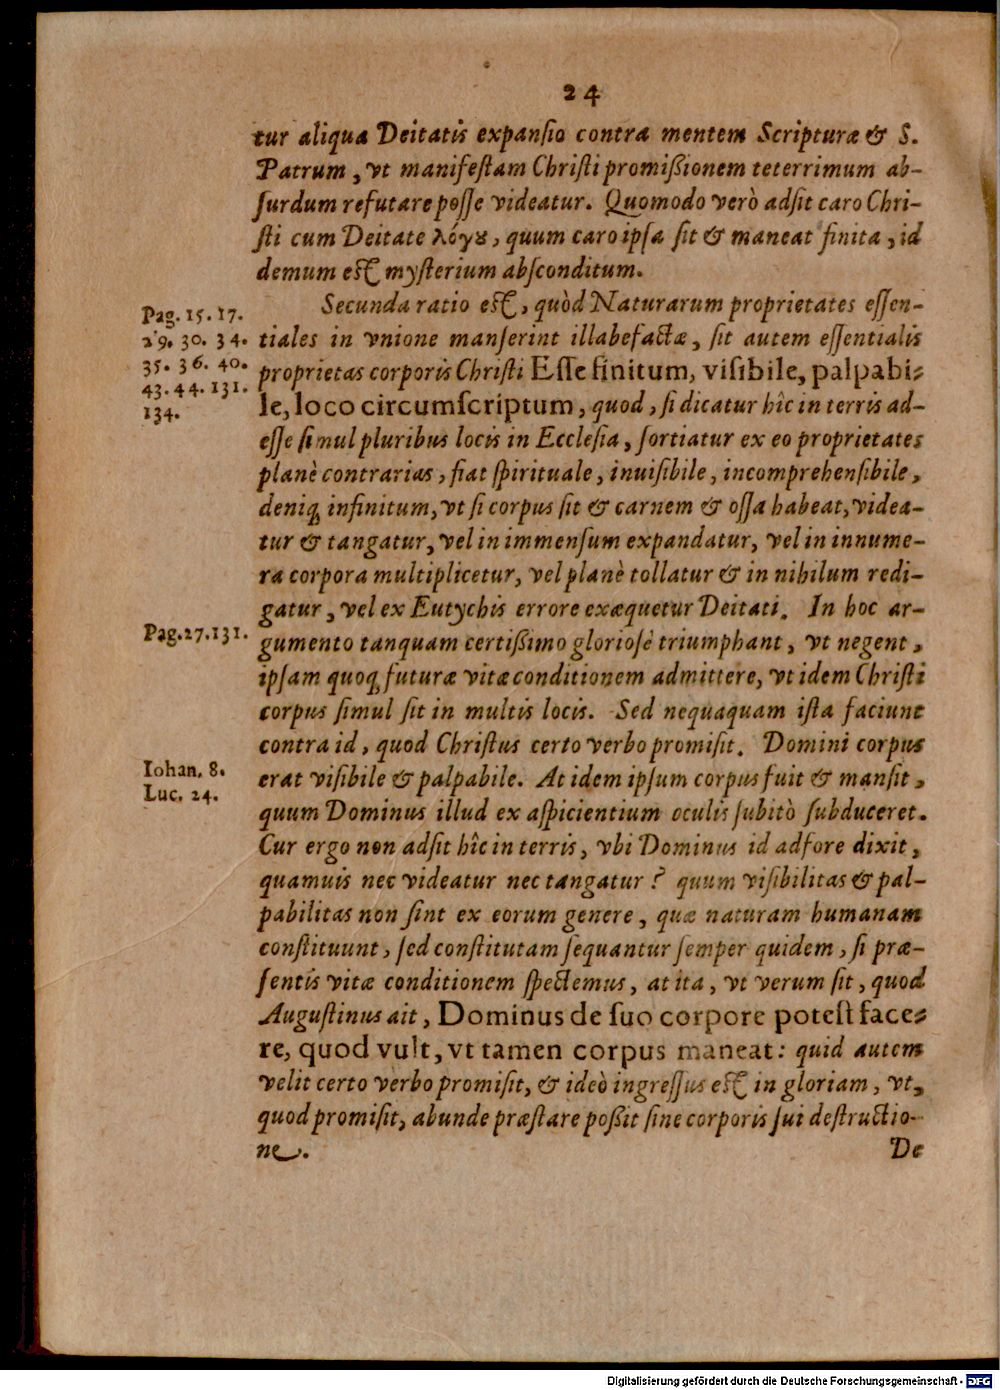 24
tur aliqua Deitatis expanſio contra mentem Scripturæ & S.
Patrum, vt manifeſtam Chriſti promißionem teterrimum ab-
ſurdum refutare poſſe videatur. Quomodo verò adſit caro Chri-
ſti cum Deitate λόγȣ, quum caro ipſa ſit & maneat finita, id
demum eſt myſterium abſconditum.
Secunda ratio eſt, quòd Naturarum proprietates eſſen-
Pag. 15. 17.
tiales in vnione manſerint illabefactæ, ſit autem eſſentialis
29. 30. 34.
proprietas corporis Chriſti Eſſe finitum, viſibile, palpabi-
35. 36. 40.
43. 44. 131.
le, loco circumſcriptum, quod, ſi dicatur hîc in terris ad-
134.
eſſe ſimul pluribus locis in Eccleſia, ſortiatur ex eo proprietates
planè contrarias, fiat ſpirituale, inuiſibile, incomprehenſibile,
deniq́ infinitum, vt ſi corpus ſit & carnem & oſſa habeat, videa-
tur & tangatur, vel in immenſum expandatur, vel in innume-
ra corpora multiplicetur, vel planè tollatur & in nihilum redi-
gatur, vel ex Eutychis errore exæquetur Deitati. In hoc ar-
Pag. 27. 131.
gumento tanquam certißimo glorioſè triumphant, vt negent,
ipſam quoq́ futuræ vitæ conditionem admittere, vt idem Chriſti
corpus ſimul ſit in multis locis. Sed nequaquam iſta faciunt
contra id, quod Chriſtus certo verbo promiſit. Domini corpus
Iohan. 8.
erat viſibile & palpabile. At idem ipſum corpus fuit & manſit,
Luc. 24.
quum Dominus illud ex aſpicientium oculis ſubitò ſubduceret.
Cur ergo non adſit hîc in terris, vbi Dominus id adfore dixit,
quamuis nec videatur nec tangatur? quum viſibilitas & pal-
pabilitas non ſint ex eorum genere, quæ naturam humanam
conſtituunt, ſed conſtitutam ſequantur ſemper quidem, ſi præ-
ſentis vitæ conditionem ſpectemus, at ita, vt verum ſit, quod
Auguſtinus ait, Dominus de ſuo corpore poteſt face-
re, quod vult, vt tamen corpus maneat: quid autem
velit certo verbo promiſit, & ideò ingreſſus eſt in gloriam, vt,
quod promiſit, abunde præſtare poßit ſine corporis ſui deſtructio-
ne.
De
Digitalisierung gefördert durch die Deutsche Forschungsgemeinschaft - DFG